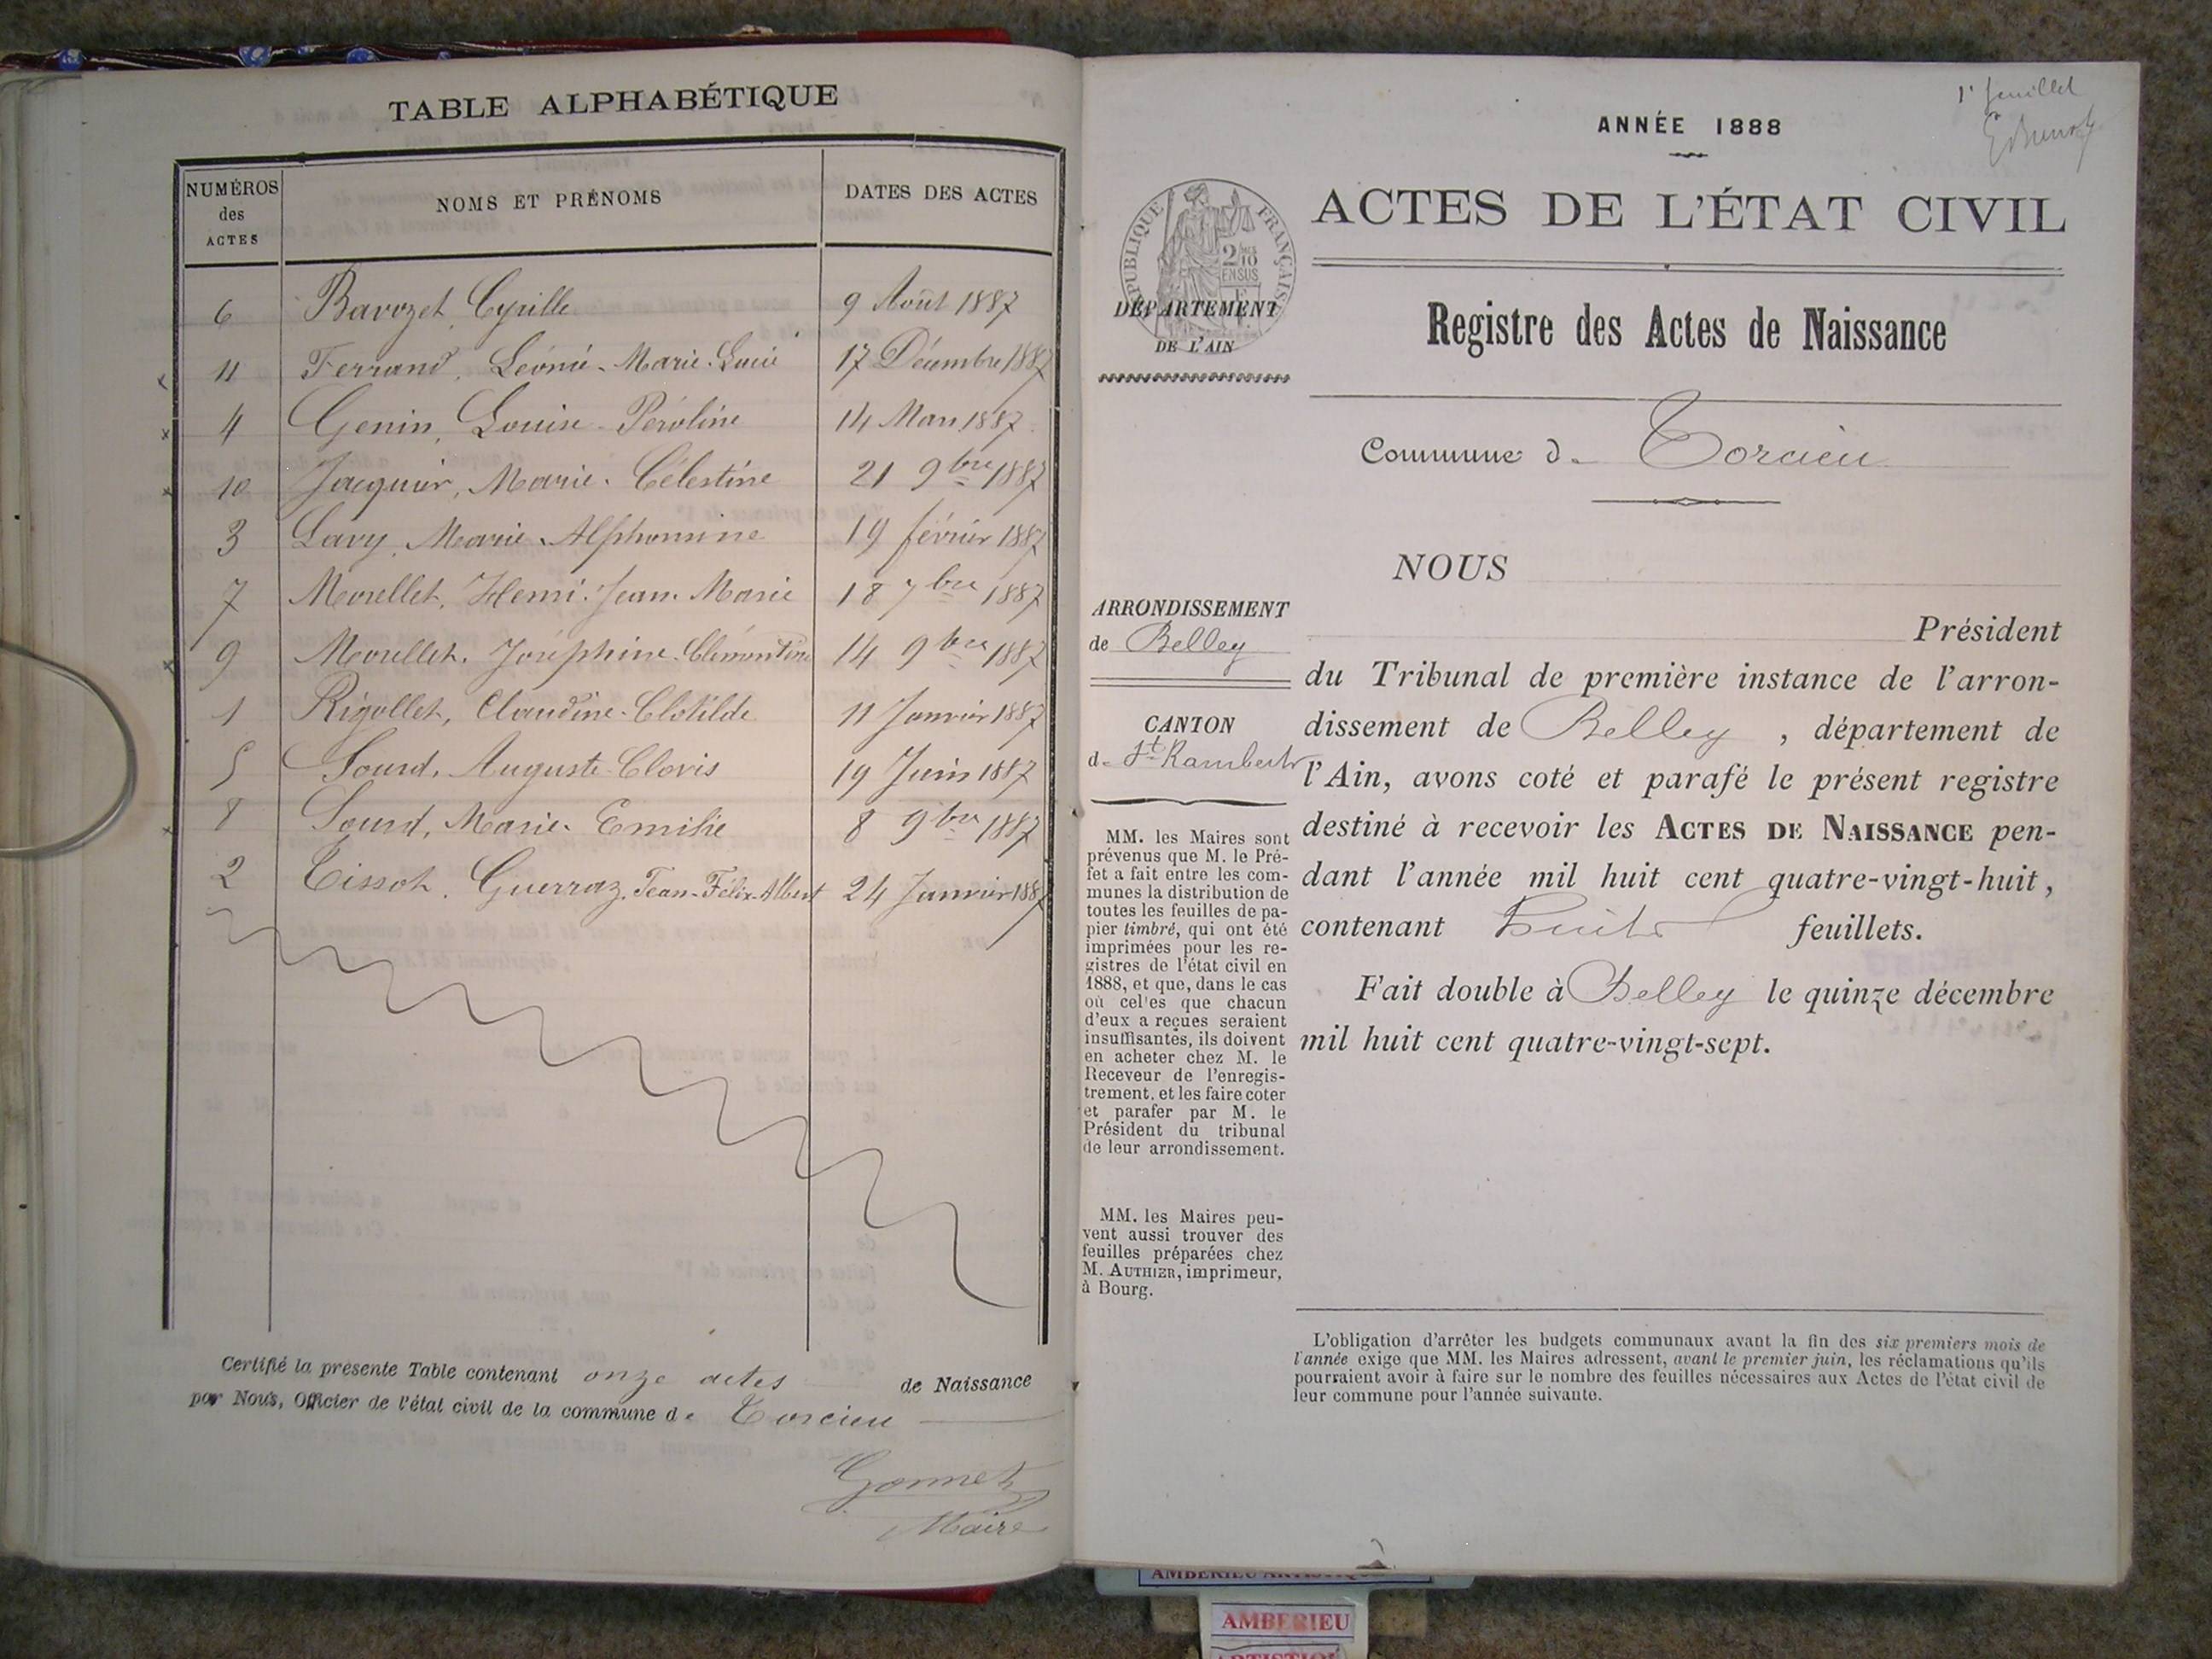 TABLE ALPHABÉTIQUE
NUMÉROS des ACTES NOMS ET PRÉNOMS DATES DES ACTES
6 Bavozet, Cyrille 9 Août 1887
11 Ferrand, Léonie-Marie-Lucie 17 Décembre 1887
4 Genin, Louise-Péroline 14 Mars 1887
10 Jacquier, Marie-Célestine 21 9bre 1887
3 Lavy, Marie-Alphonsine 19 février 1887
7 Morellet, Henri-Jean-Marie 18 7bre 1887
9 Morellet, Joséphine-Clémentine 14 9bre 1887
1 Rigollet, Claudine-Clotilde 11 Janvier 1887
5 Sourd, Auguste-Clovis 19 Juin 1887
8 Sourd, Marie-Emilie 8 9bre 1887
2 Tissot, Guerraz, Jean-Félix-Albert 24 Janvier 1887
Certifié la présente Table contenant onze actes de Naissance
par Nous, Officier de l'état civil de la commune de Torcieu
Gonnet
Maire
1r feuillet
ANNÉE 1888
ACTES DE L'ÉTAT CIVIL
RÉPUBLIQUE FRANÇAISE
2/10 EN SUS
DÉPARTEMENT
DE L'AIN
Registre des Actes de Naissance
Commune de Torcieu
ARRONDISSEMENT
de Belley
CANTON
de St Rambert
MM. les Maires sont
prévenus que M. le Pré-
fet a fait entre les com-
munes la distribution de
toutes les feuilles de pa-
pier timbré, qui ont été
imprimées pour les re-
gistres de l'état civil en
1888, et que, dans le cas
où celles que chacun
d'eux a reçues seraient
insuffisantes, ils doivent
en acheter chez M. le
Receveur de l'enregis-
trement, et les faire coter
et parafer par M. le
Président du tribunal
de leur arrondissement.
MM. les Maires peu-
vent aussi trouver des
feuilles préparées chez
M. AUTHIER, imprimeur,
à Bourg.
NOUS
Président
du Tribunal de première instance de l'arron-
dissement de Belley , département de
l'Ain, avons coté et parafé le présent registre
destiné à recevoir les ACTES DE NAISSANCE pen-
dant l'année mil huit cent quatre-vingt-huit,
contenant huit feuillets.
Fait double à Belley le quinze décembre
mil huit cent quatre-vingt-sept.
L'obligation d'arrêter les budgets communaux avant la fin des six premiers mois de
l'année exige que MM. les Maires adressent, avant le premier juin, les réclamations qu'ils
pourraient avoir à faire sur le nombre des feuilles nécessaires aux Actes de l'état civil de
leur commune pour l'année suivante.
AMBERIEU ARTISTIQUE
AMBERIEU
ARTISTIQUE